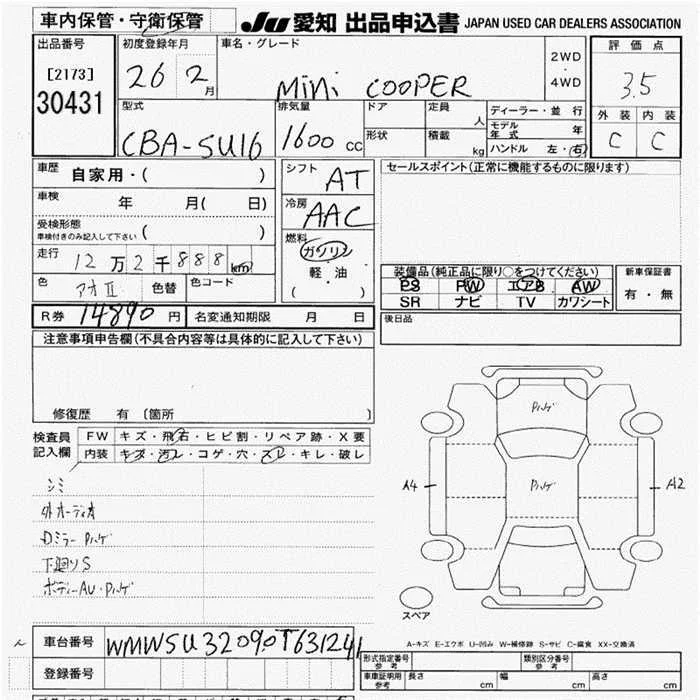 車内保管・守衛保管
JU 愛知 出品申込書 JAPAN USED CAR DEALERS ASSOCIATION
出品番号
[2173]
30431
初度登録年月
26 2月
車名・グレード
MiNi COOPER
2WD
・
4WD
評価点
3.5
外装 内装
C C
型式
CBA-SU16
排気量
1600 CC
ドア
定員
人
形状
積載
kg
ディーラー・並行
モデル年式 年
ハンドル 左・右
車歴
自家用・( )
車検
年 月( 日)
受検形態
車検付きのみ記入して下さい ( )
走行
12万2千888km
色
アオII
色替
色コード
シフト
AT
冷房
AAC
燃料
ガソリン
軽・油
( )
セールスポイント(正常に機能するものに限ります)
装備品(純正品に限り○をつけてください)
PS PW エアB AW
SR ナビ TV カワシート
新車保証書
有・無
後日品
R券 14890 円 名変通知期限 月 日
注意事項申告欄(不具合内容等は具体的に記入して下さい)
修復歴 有〔箇所 〕
検査員
記入欄
FW キズ・飛石・ヒビ割・リペア跡・X要
内装 キズ・汚レ・コゲ・穴・スレ・キレ・破レ
シミ
外オーディオ
Dミラー Pハゲ
下廻りS
ボディーAU・Pハゲ
Pハゲ
Pハゲ
A4
A12
スペア
A-キズ E-エクボ U-凹み W-補修跡 S-サビ C-腐食 XX-交換済
車台番号
WMWSU32090T631241
登録番号
形式指定番号
参考
類別区分番号
参考
車庫証明用
参考
長さ cm 幅 cm 高さ cm